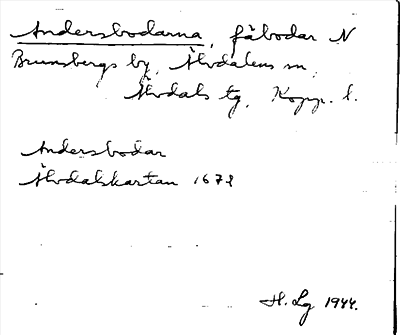 Andersbodarna, fäbodar N
Brunnsbergs by, Älvdalens sn,
Älvdals tg, Kopp. l.
Andersbodar
Älvdalskartan 1678
H. Lg 1944.